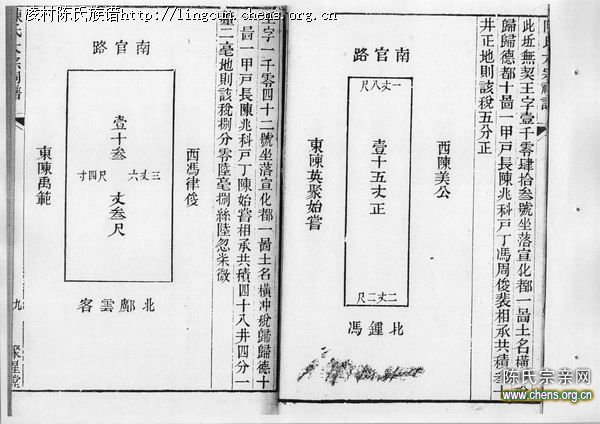 凌村陈氏族谱 http://lingcun.chens.org.cn
此近無契王字壹千零肆拾叁號坐落宣化都一啚土名橫
歸歸德都十啚一甲戸長陳兆科戸丁馮周俊裴相承共積叁
井正地則該稅五分正
南官路
一丈八尺
西陳美公
壹十五丈正
東陳英聚始嘗
二丈二尺
北鍾馮
王字一千零四十二號坐落宣化都一啚土名橫冲稅歸歸德十
啚一甲戸長陳兆科戸丁陳始嘗相承共積四十八井四分一
二毫地則該稅捌分零陸毫捌絲陸忽柒微
南官路
西馮律俊
壹十叁丈叁尺
三丈六尺四寸
東陳禹範
北鄺雲客
九
聚星堂
陈氏宗亲网
www.chens.org.cn